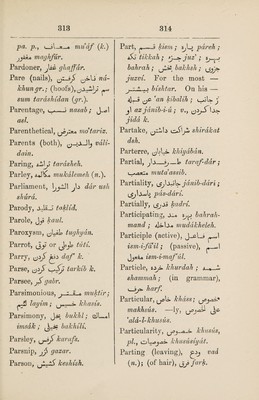 313
pa. p., معاف mu'áf (k.)
مغفور maghfúr.
Pardoner, غفّار ghaffár.
Pare (nails), ناخن گرفتن ná-
khun gr.; (hoofs), سم تراشیدن
sum taráshídan (gr.).
Parentage, نسب nasab; اصل
asl.
Parenthetical, معترضه mo'tariza.
Parents (both), والدین váli-
dain.
Paring, تراشه tarásheh.
Parley, مکالمه mukálemeh (n.).
Parliament, دار الشوری dár ush
shúrá.
Parody, تقلید taklíd.
Parole, قول kaul.
Paroxysm, طغیان tughyán.
Parrot, طوطی or توتی tútí.
Parry, دفع کردن daf' k.
Parse, ترکیب کردن tarkíb k.
Parsee, گبر gabr.
Parsimonious, مقتر muktir;
لئیم layím; خسیس khasís.
Parsimony, بخل bukhl; امساک
imsák; بخیلی bakhílí.
Parsley, کرفس karafs.
Parsnip, گزر gazar.
Parson, کشیش keshísh.
314
Part, قسم kism; پاره páreh;
تکه tikkah; جزء juz'; بهره
bahrah; بخش bakhsh; جزوی
juzví. For the most —
بیشتر bíshtar. On his —
از جانب او عن قبله 'an kibalih;
az jánib-i-ú; v., جدا کردن
jidá k.
Partake, شراکت داشتن shirákat
dsh.
Parterre, خیابان khiyábán.
Partial, طرفدار taraf-dár;
متعصب muta'assib.
Partiality, جانبداری jánib-dári;
پاسداری pás-dárí.
Partially, قدری kadrí.
Participating, بهره مند bahrah-
mand; مداخله mudákheleh.
Participle (active), اسم فاعل
ism-i-fá'il; (passive), اسم
مفعول ism-i-maf'úl.
Particle, خرده khurdah; شمه
shammah; (in grammar),
حرف harf.
Particular, خاص kháss; مخصوص
makhsús. —ly, علی الخصوص
'alá-l-khusús.
Particularity, خصوص khusús,
pl., خصوصیات khusúsiyát.
Parting (leaving), ودع vad
(n.); (of hair), فرق fark.